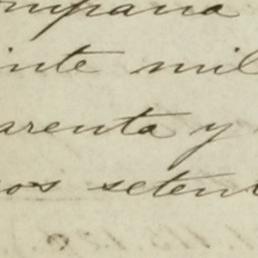 ompana
inte mil
arenta y
os setent